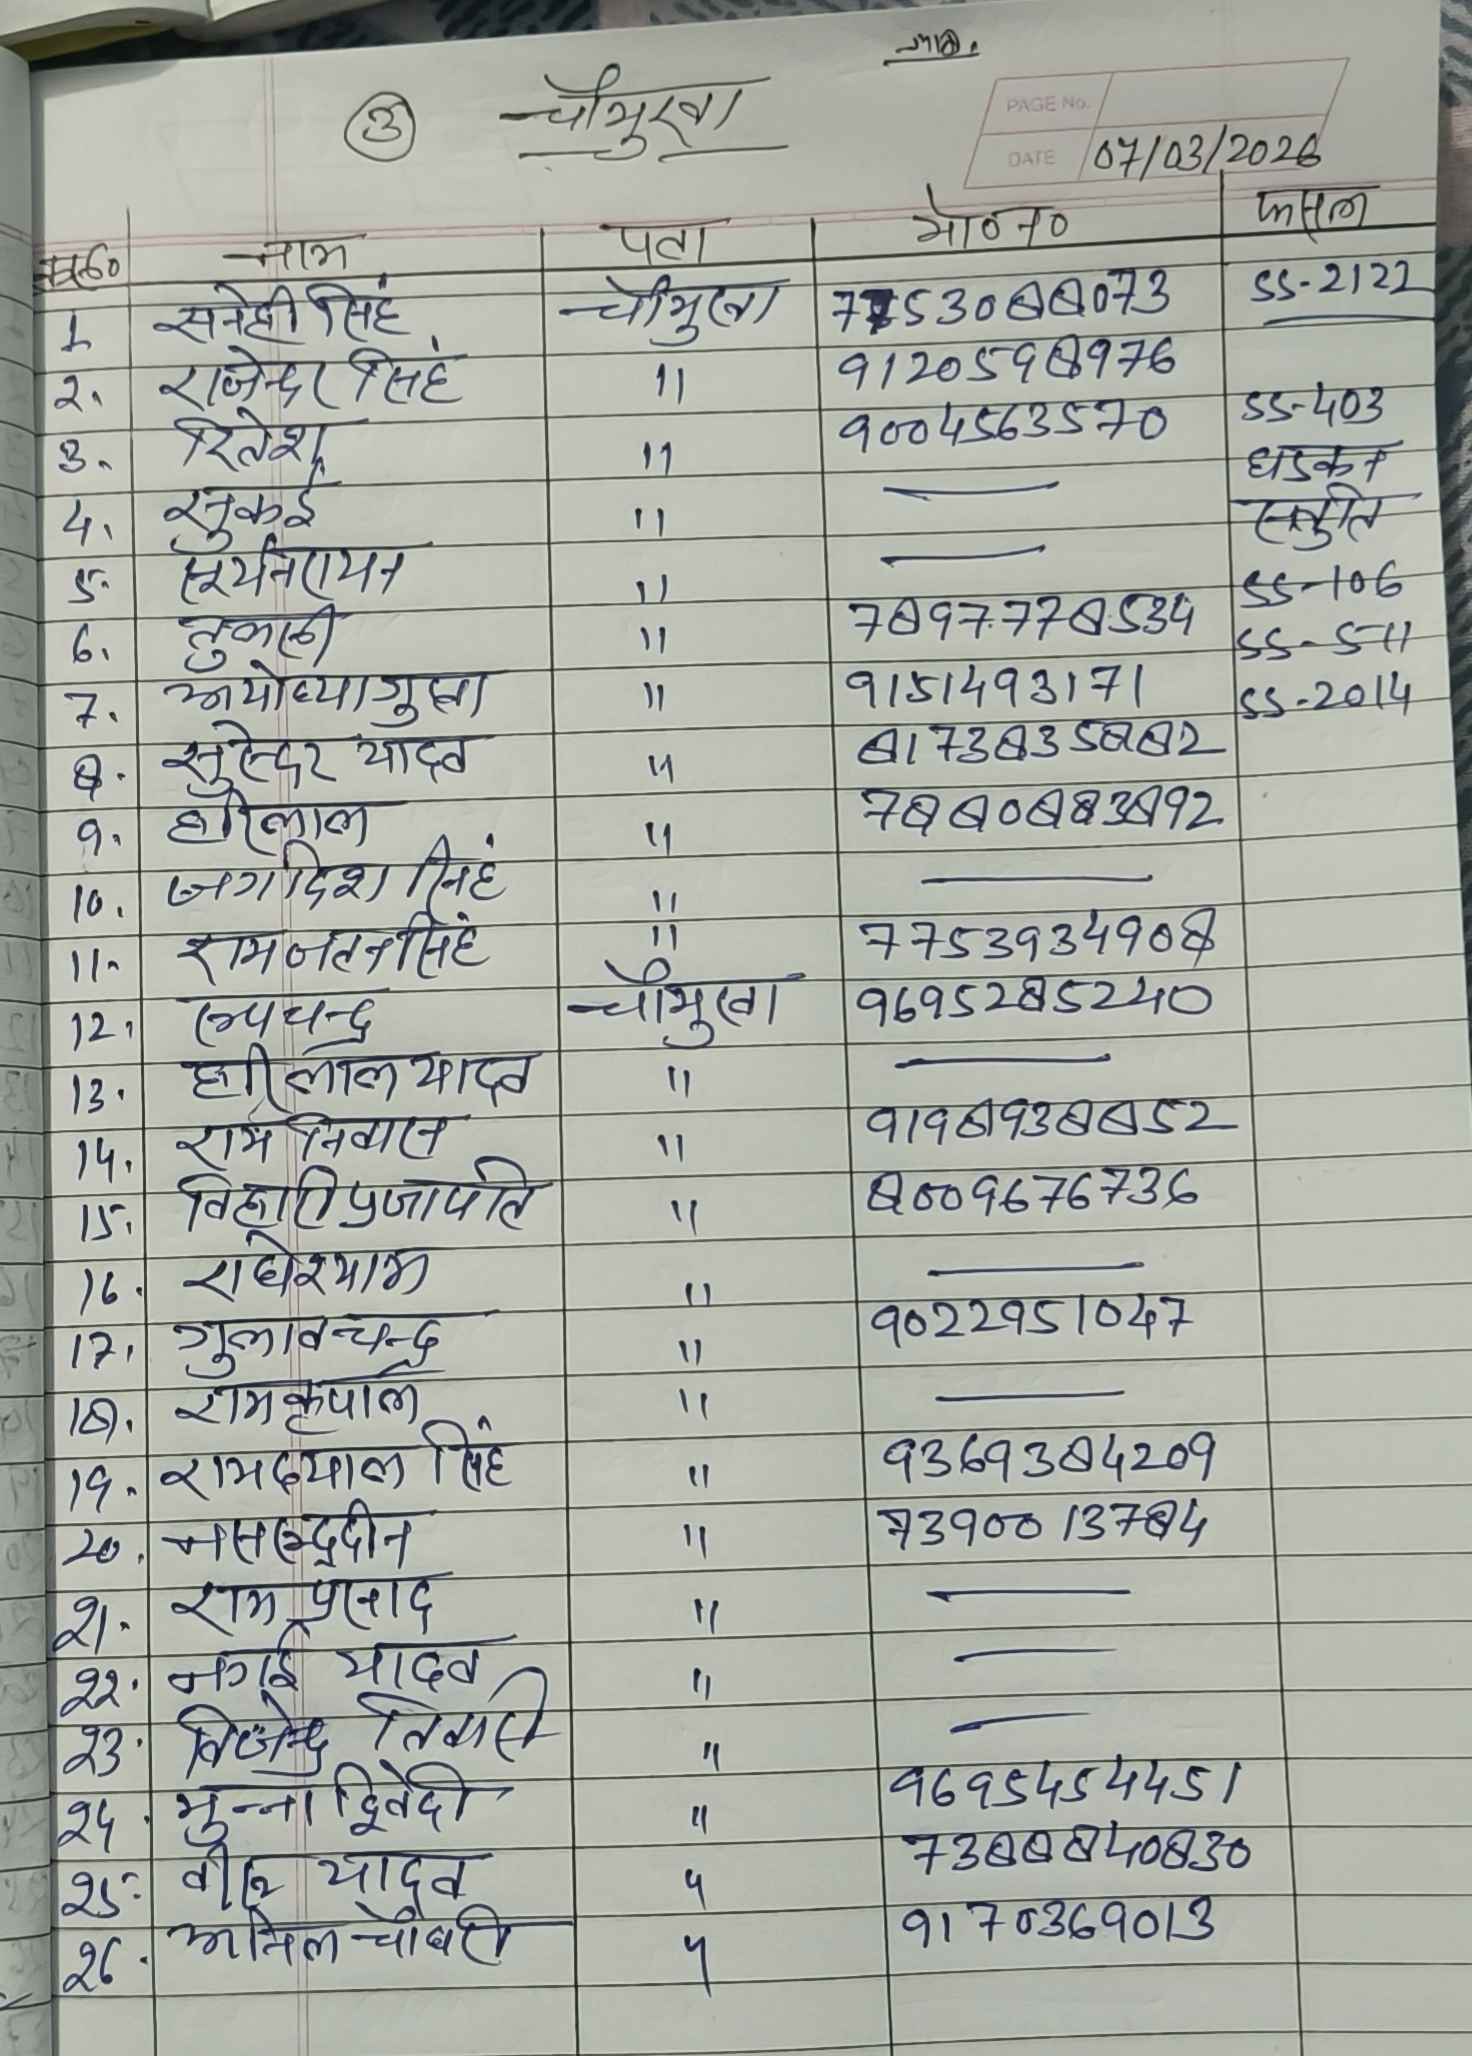 ③ चौमुखा
PAGE No.
DATE 07/03/2026
क्र०सं० नाम पता मो०न० फसल
1 सनेही सिंह चौमुखा 7753088073 SS-2122
2. राजेन्द्र सिंह " 9120598976
3. रितेश " 9004563570 SS-403
4. सुकई " — धडकन
5. सूर्यनरायन " — स्तुति
6. तुफानी " 7897778534 SS-106
7. अयोध्या गुप्ता " 9151493171 SS-511
8. सुरेन्दर यादव " 8173835882 SS-2014
9. हरिलाल " 7880883892
10. जगदिश सिंह " —
11. रामजतन सिंह " 7753934908
12. रूपचन्द्र चौमुखा 9695285240
13. हरिलाल यादव " —
14. राम निवास " 9198938852
15. विहारी प्रजापति " 8009676736
16. राधेश्याम " —
17. गुलाबचन्द्र " 9022951047
18. रामकृपाल " —
19. रामदयाल सिंह " 9369384209
20. नसरूद्दीन " 7390013784
21. राम प्रसाद " —
22. नगई यादव " —
23. विजेन्द्र तिवारी " —
24. मुन्ना द्विवेदी " 9695454451
25. वीरू यादव " 7388840830
26. अनिल चौधरी " 9170369013